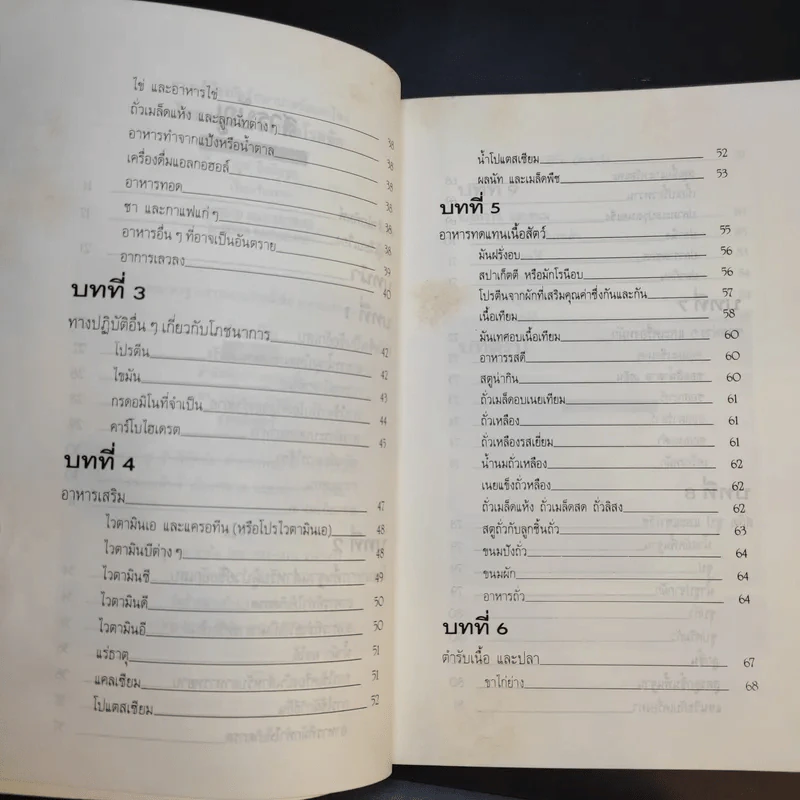 ไข่ และอาหารไข่
ถั่วเมล็ดแห้ง และลูกนัทต่างๆ 38
อาหารทำจากแป้งหรือน้ำตาล 38
เครื่องดื่มแอลกอฮอล์ 38
อาหารทอด 38
ชา และกาแฟแก่ๆ 38
อาหารอื่นๆ ที่อาจเป็นอันตราย 38
อาการเลวลง 39
40
บทที่ 3
ทางปฏิบัติอื่นๆ เกี่ยวกับโภชนาการ 42
โปรตีน 42
ไขมัน 43
กรดอมิโนที่จำเป็น 44
คาร์โบไฮเดรต 45
บทที่ 4
อาหารเสริม 47
ไวตามินเอ และแครอทีน (หรือโปรไวตามินเอ) 48
ไวตามินบีต่างๆ 48
ไวตามินซี 49
ไวตามินดี 50
ไวตามินอี 50
แร่ธาตุ 51
แคลเซียม 51
โปแตสเซียม 52
น้ำโปแตสเซียม 52
ผลนัท และเมล็ดพืช 53
บทที่ 5
อาหารทดแทนเนื้อสัตว์ 55
มันฝรั่งอบ 56
สปาเก็ตตี หรือมักโรนีอบ 56
โปรตีนจากผักที่เสริมคุณค่าซึ่งกันและกัน 57
เนื้อเทียม 58
มันเทศอบเนื้อเทียม 60
อาหารรสดี 60
สตูน่ากิน 60
ถั่วเมล็ดอบเนยเทียม 61
ถั่วเหลือง 61
ถั่วเหลืองรสเยี่ยม 61
น้ำนมถั่วเหลือง 62
เนยแข็งถั่วเหลือง 62
ถั่วเมล็ดแห้ง ถั่วเมล็ดสด ถั่วลิสง 62
สตูถั่วกับลูกชิ้นถั่ว 63
ขนมปังถั่ว 64
ขนมผัก 64
อาหารถั่ว 64
บทที่ 6
ตำรับเนื้อ และปลา 67
ขาไก่ย่าง 68